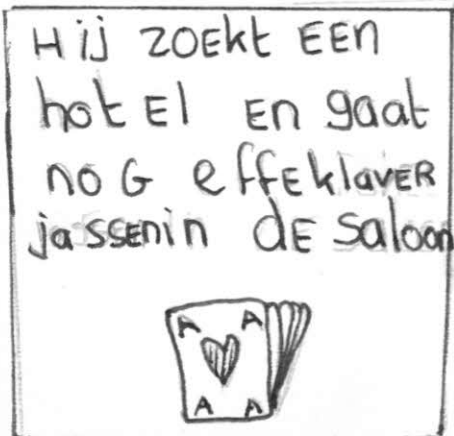 Hij zoEkt EEn
hotEl En gaat
noG effEklavER
jassEnin dE saloon
A A
A A